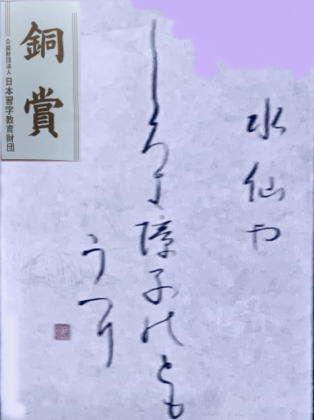 水仙や
しろき障子のとも
うつり
銅賞
公益財団法人 日本習字教育財団